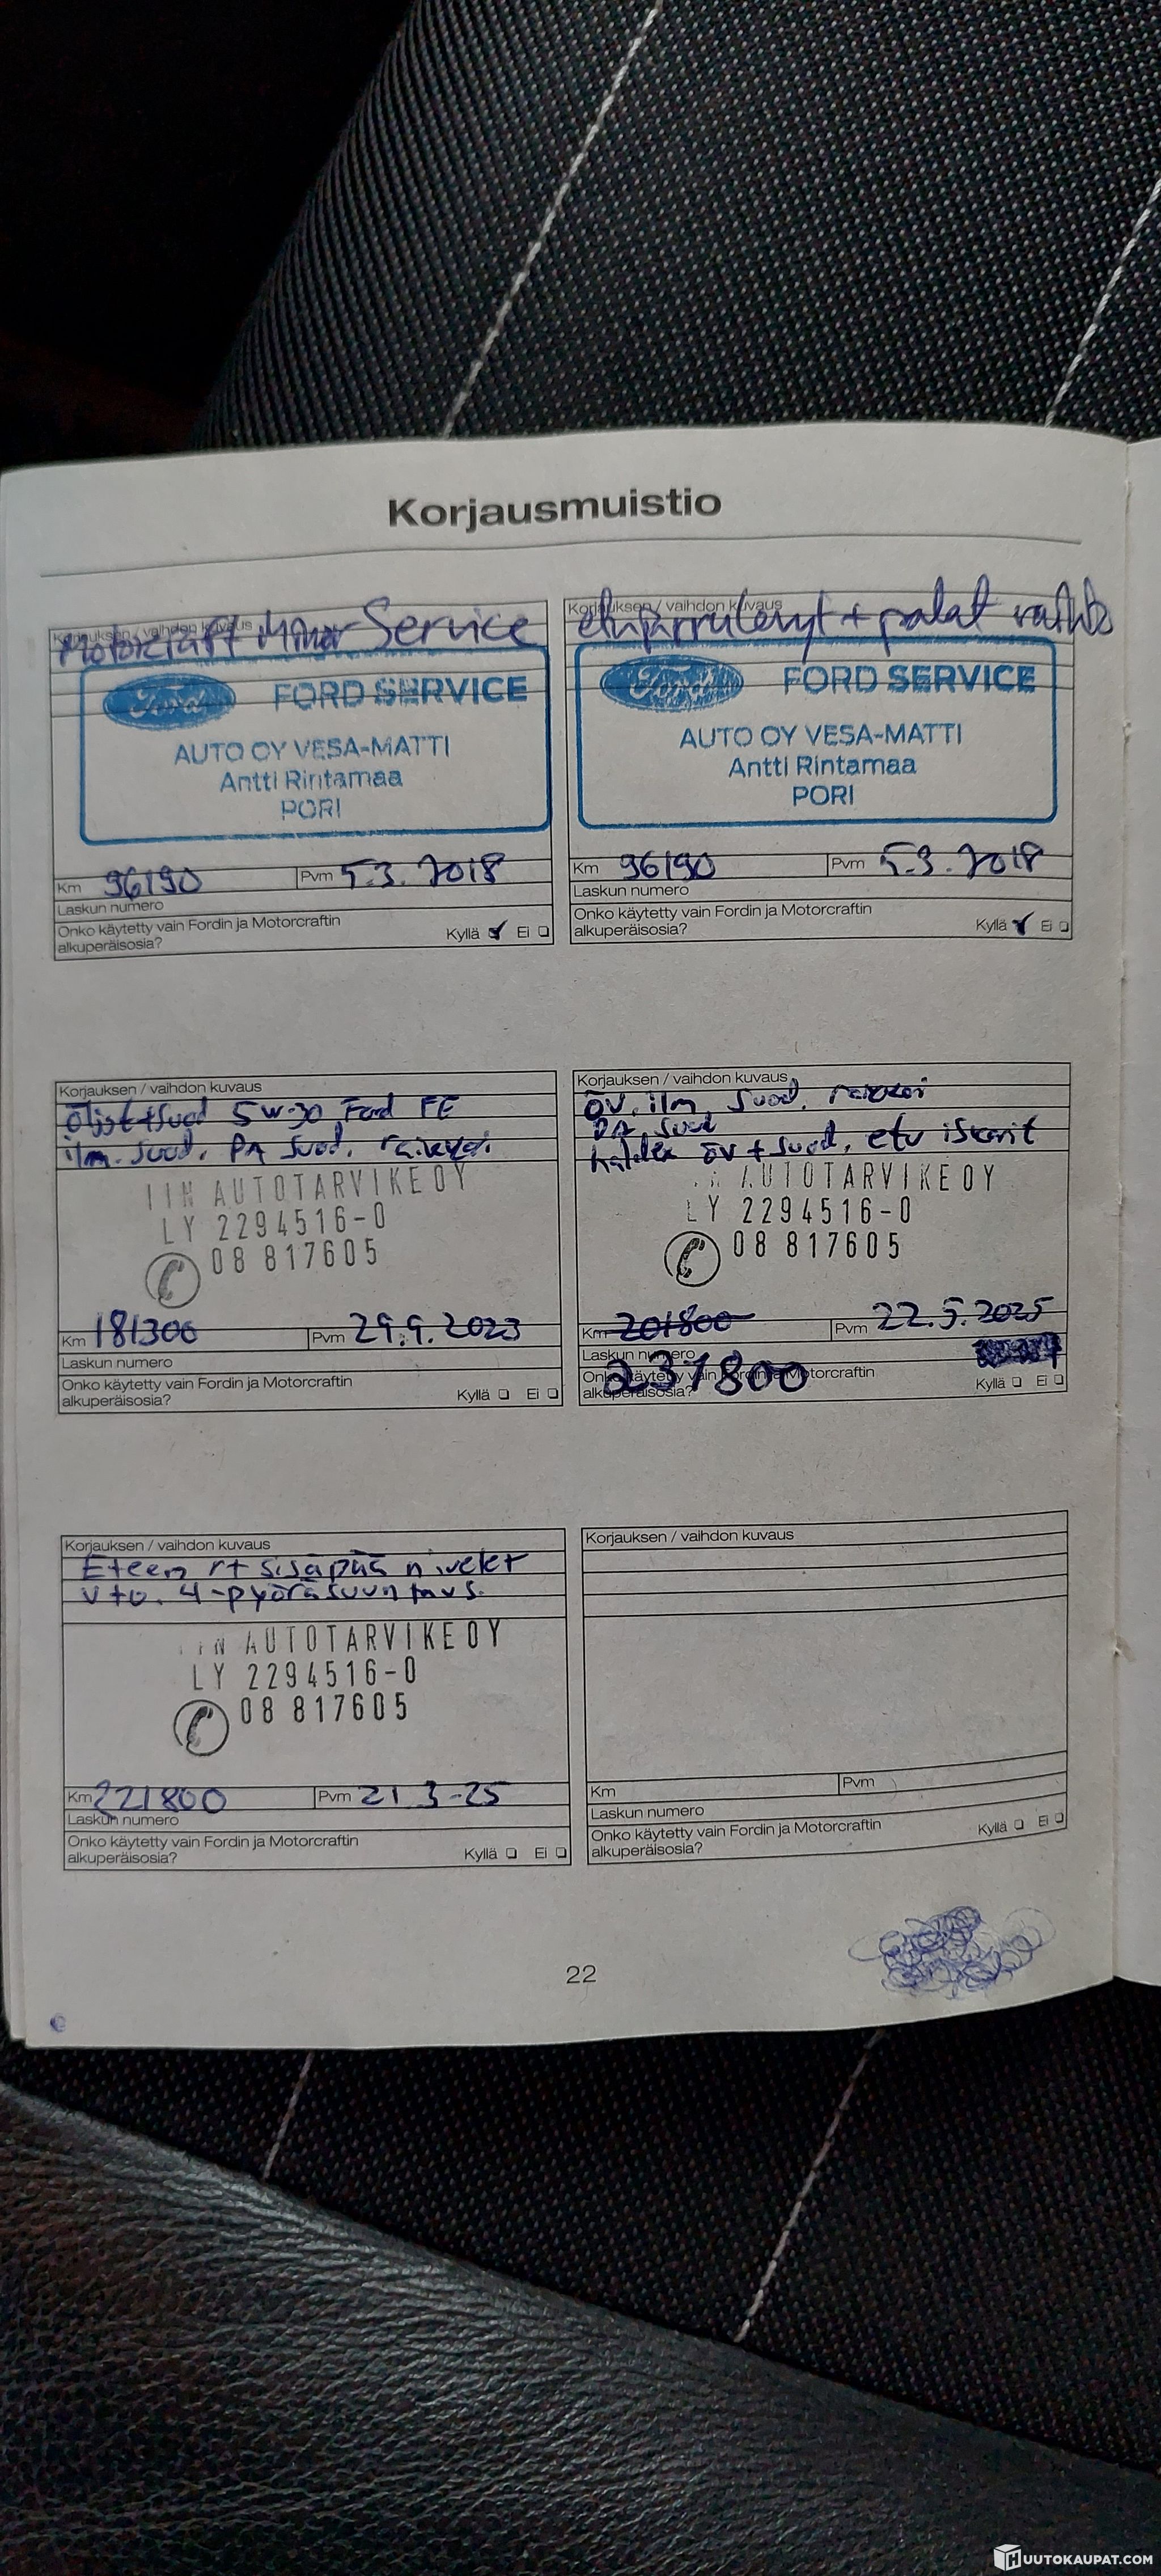 Korjausmuistio
Korjauksen / vaihdon kuvaus
Motorcraft Minor Service
Ford FORD SERVICE
AUTO OY VESA-MATTI
Antti Rintamaa
PORI
Km 96190 Pvm 5.3.2018
Laskun numero
Onko käytetty vain Fordin ja Motorcraftin
alkuperäisosia? Kyllä Ei
Korjauksen / vaihdon kuvaus
etujarrulevyt + palat vaihto
Ford FORD SERVICE
AUTO OY VESA-MATTI
Antti Rintamaa
PORI
Km 96190 Pvm 5.3.2018
Laskun numero
Onko käytetty vain Fordin ja Motorcraftin
alkuperäisosia? Kyllä Ei
Korjauksen / vaihdon kuvaus
Öljyt+suod 5W-30 Ford FE
ilm. suod, PA suod,
IIN AUTOTARVIKE OY
LY 2294516-0
08 817605
Km 181300 Pvm 29.9.2023
Laskun numero
Onko käytetty vain Fordin ja Motorcraftin
alkuperäisosia? Kyllä Ei
Korjauksen / vaihdon kuvaus
ÖV, ilm, suod,
PA, suod
haldex öv + suod, etu iskarit
AUTOTARVIKE OY
LY 2294516-0
08 817605
Km 201800 Pvm 22.5.2025
Laskun numero
231800
Onko käytetty vain Fordin ja Motorcraftin
alkuperäisosia? Kyllä Ei
Korjauksen / vaihdon kuvaus
Eteen sisäpää nivelet
vto. 4-pyöräsuuntaus.
IIN AUTOTARVIKE OY
LY 2294516-0
08 817605
Km 221800 Pvm 21 3-25
Laskun numero
Onko käytetty vain Fordin ja Motorcraftin
alkuperäisosia? Kyllä Ei
Korjauksen / vaihdon kuvaus
Km Pvm
Laskun numero
Onko käytetty vain Fordin ja Motorcraftin
alkuperäisosia? Kyllä Ei
22
HUUTOKAUPAT.COM